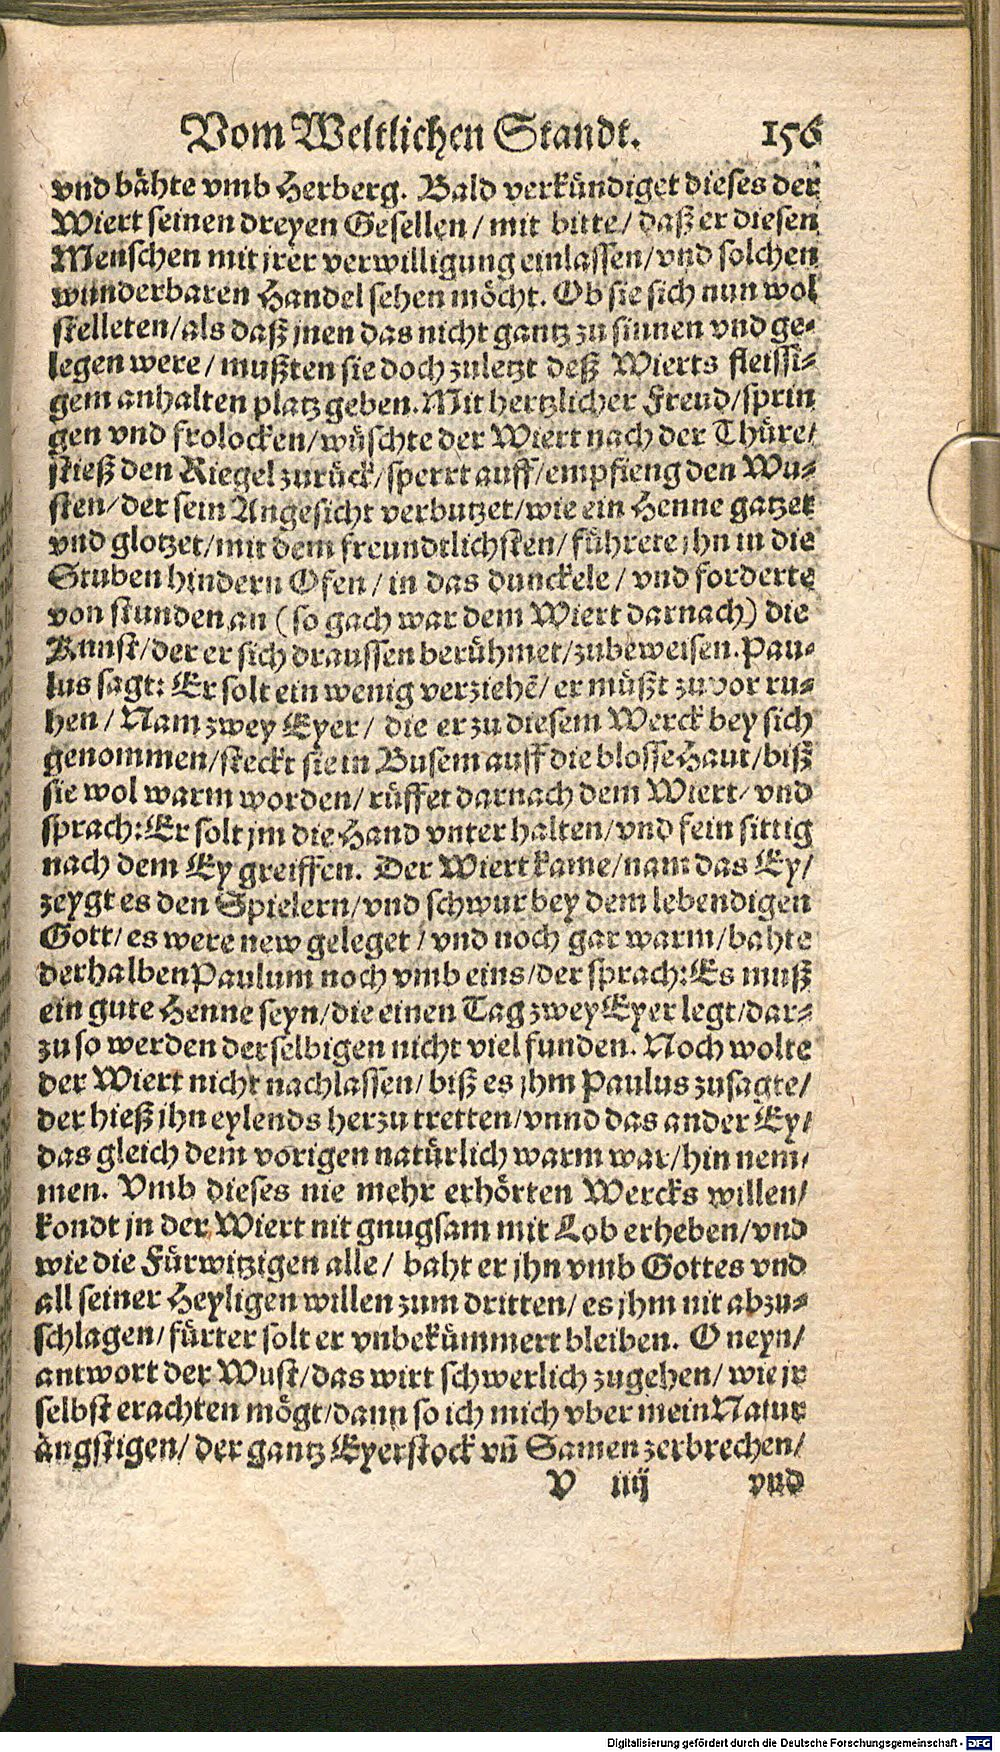 Vom Weltlichen Standt. 156
vnd bähte vmb Herberg. Bald verkündiget dieses der
Wiert seinen dreyen Gesellen / mit bitte / daß er diesen
Menschen mit jrer verwilligung einlassen / vnd solchen
wunderbaren Handel sehen möcht. Ob sie sich nun wol
stelleten / als daß jnen das nicht gantz zu sinnen vnd ge-
legen were / mußten sie doch zuletzt deß Wierts fleissi-
gem anhalten platz geben. Mit hertzlicher Freud / sprin
gen vnd frolocken / wüschte der Wiert nach der Thüre /
stieß den Riegel zurück / sperrt auff / empfieng den Wu-
sten / der sein Angesicht verbutzet / wie ein Henne gatzet
vnd glotzet / mit dem freundtlichsten / führete jhn in die
Stuben hindern Ofen / in das dunckele / vnd forderte
von stunden an (so gach war dem Wiert darnach) die
Kunst / der er sich draussen berühmet / zubeweisen. Pau-
lus sagt: Er solt ein wenig verziehẽ / er müßt zuvor ru-
hen / Nam zwey Eyer / die er zu diesem Werck bey sich
genommen / steckt sie in Busem auff die blosse Haut / biß
sie wol warm worden / rüffet darnach dem Wiert / vnd
sprach: Er solt jm die Hand vnter halten / vnd fein sittig
nach dem Ey greiffen. Der Wiert kame / nam das Ey /
zeygt es den Spielern / vnd schwur bey dem lebendigen
Gott / es were new geleget / vnd noch gar warm / bahte
derhalben Paulum noch vmb eins / der sprach: Es muß
ein gute Henne seyn / die einen Tag zwey Eyer legt / dar-
zu so werden derselbigen nicht viel funden. Noch wolte
der Wiert nicht nachlassen / biß es jhm Paulus zusagte /
der hieß jhn eylends herzu tretten / vnnd das ander Ey /
das gleich dem vorigen natürlich warm war / hin nem-
men. Vmb dieses nie mehr erhörten Wercks willen /
kondt jn der Wiert nit gnugsam mit Lob erheben / vnd
wie die Fürwitzigen alle / baht er jhn vmb Gottes vnd
all seiner Heyligen willen zum dritten / es jhm nit abzu-
schlagen / fürter solt er vnbekümmert bleiben. O neyn /
antwort der Wust / das wirt schwerlich zugehen / wie jr
selbst erachten mögt / dann so ich mich vber mein Natur
ängstigen / der gantz Eyerstock vñ Samen zerbrechen /
V iiij vnd
Digitalisierung gefördert durch die Deutsche Forschungsgemeinschaft - DFG